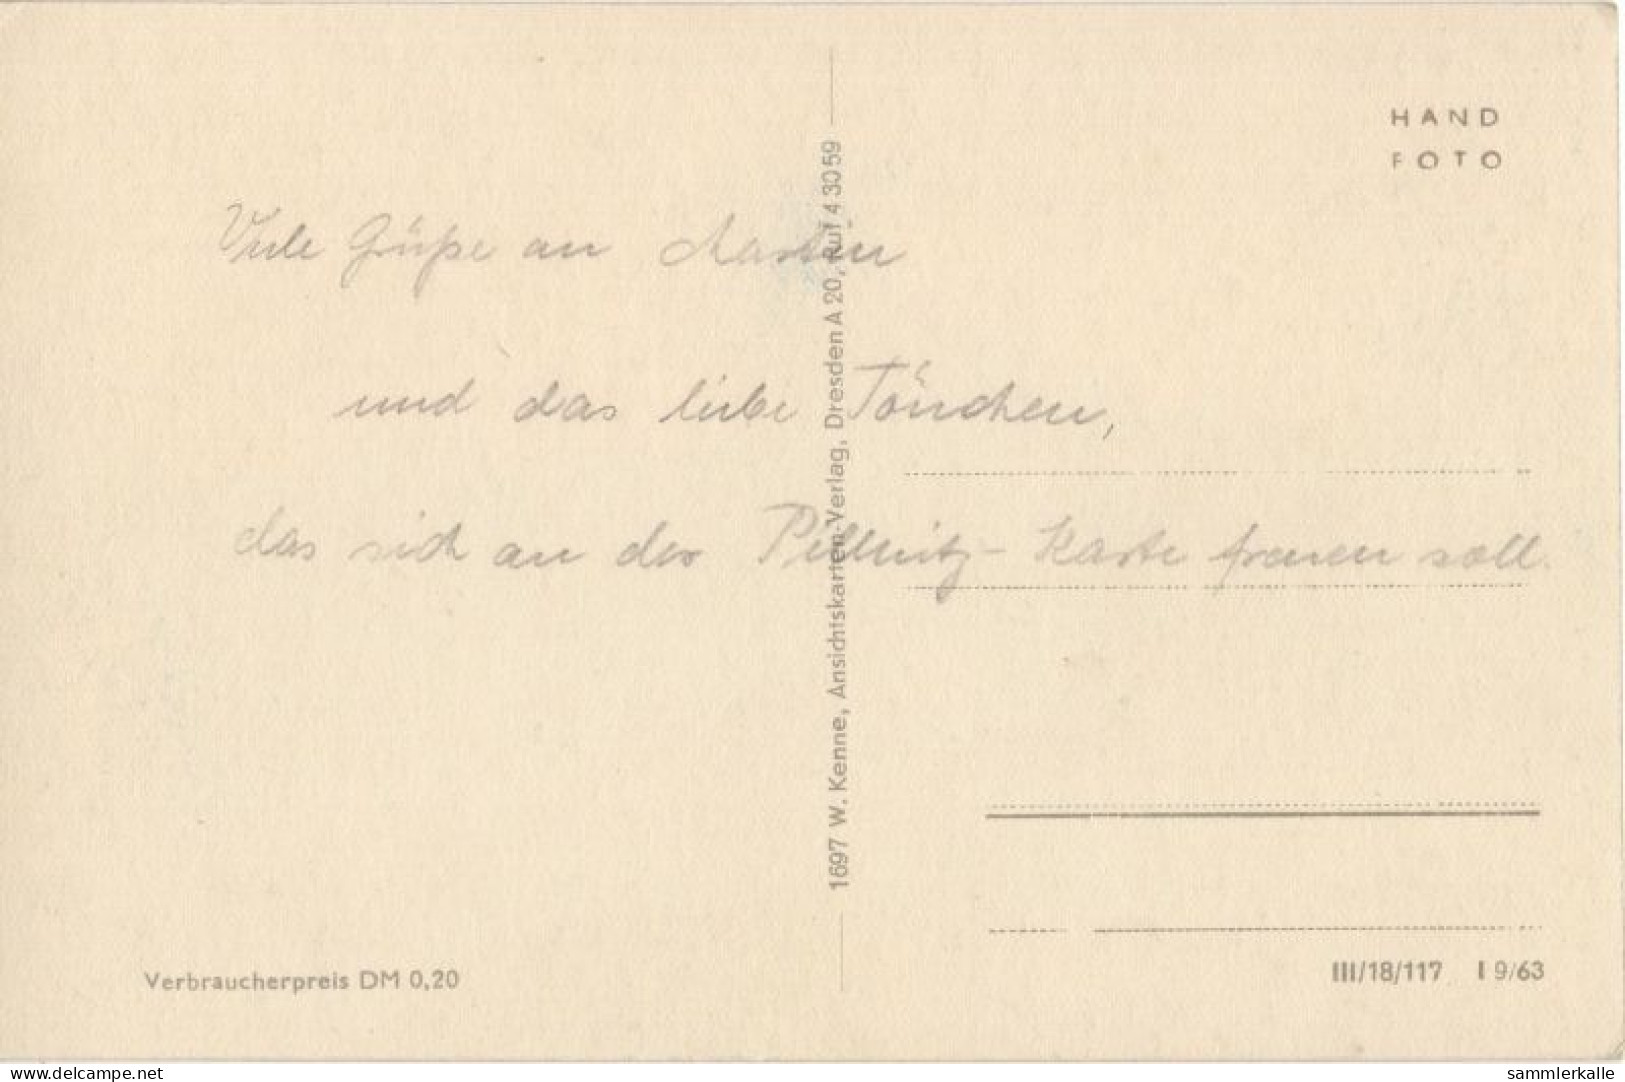 HAND
FOTO
Viele Grüße an Martin
und das liebe Tönchen,
das sich an der Pillnitz-Karte freuen soll.
1697 W. Kenne, Ansichtskarten-Verlag, Dresden A 20, Ruf 4 30 59
Verbraucherpreis DM 0,20
III/18/117 I 9/63
www.delcampe.net
sammlerkalle